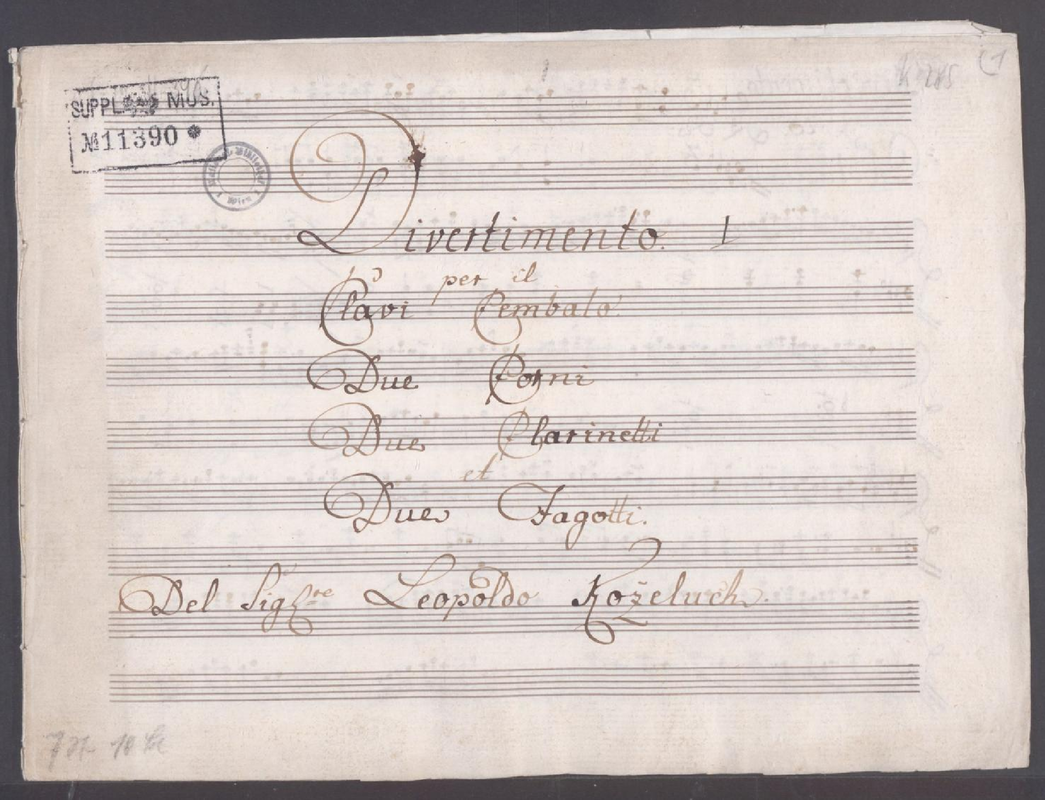 SUPPL. MUS.
№11390 *
Divertimento. 1
per il
Clavi Cembalo
Due Corni
Due Clarinetti
et
Due Fagotti.
Del Sigre Leopoldo Koželuch.